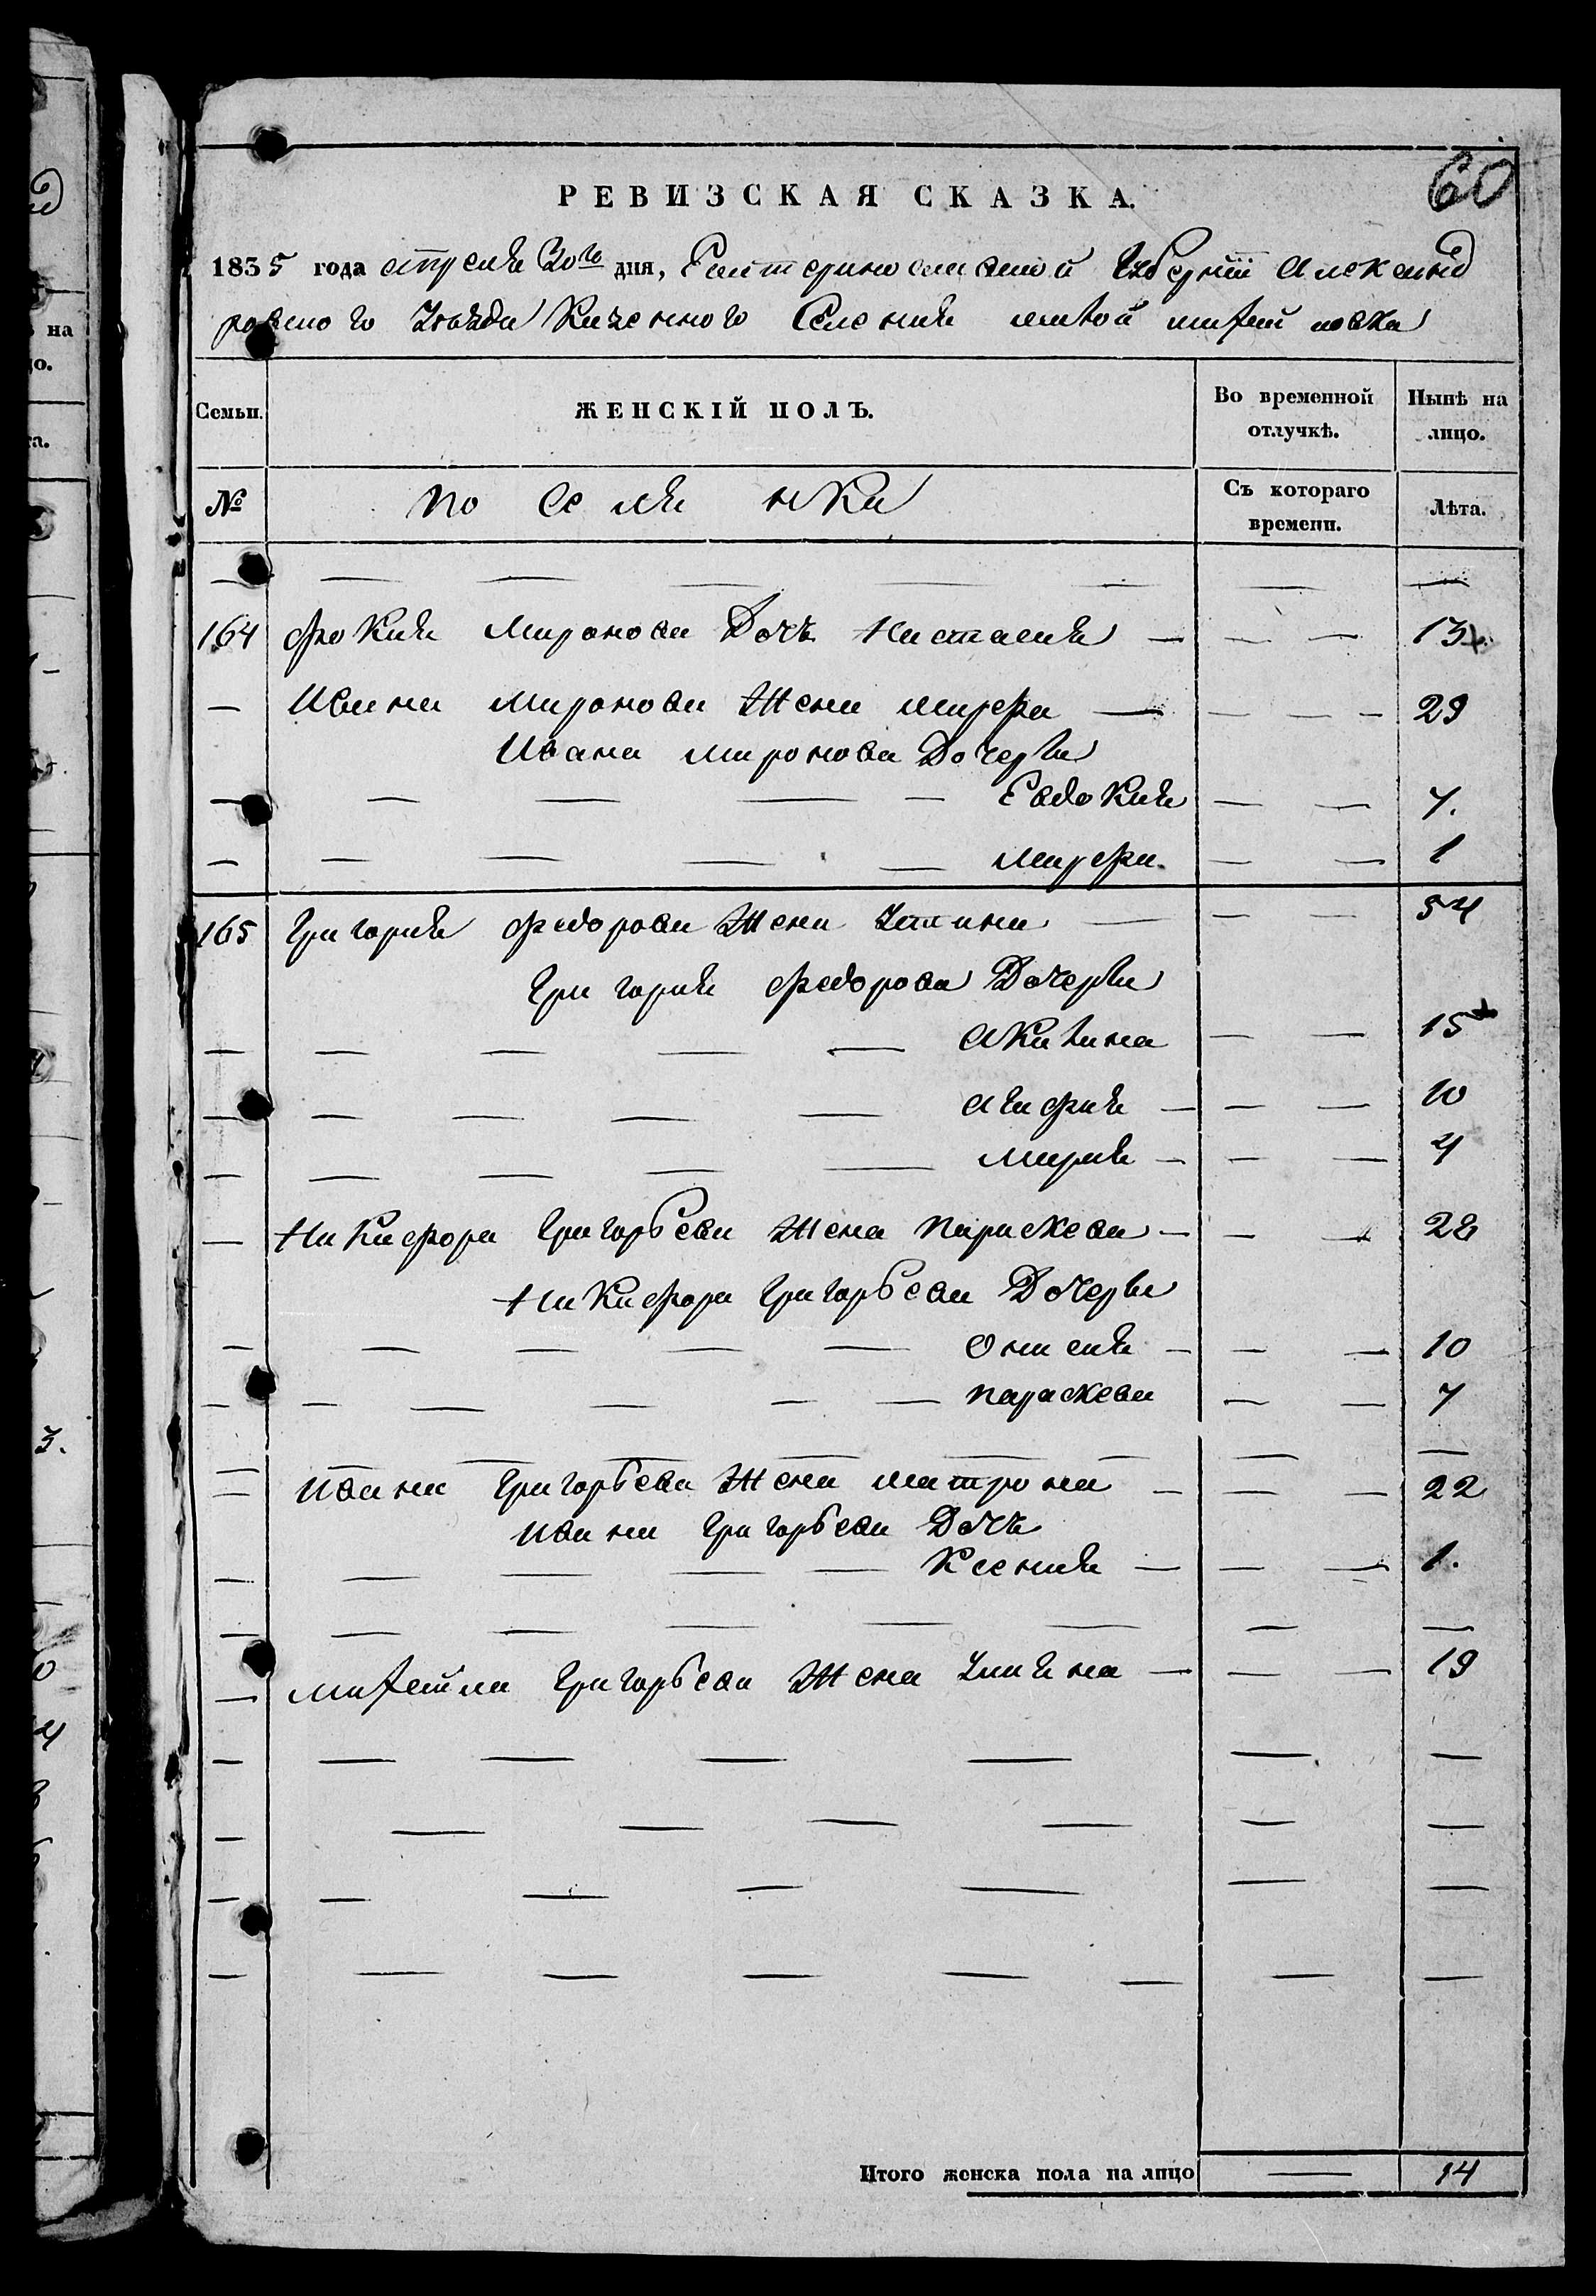 60
РЕВИЗСКАЯ СКАЗКА.
1835 года апреля 30го дня, Екатеринославской Губернии Александ
ровского Уезда Казенного Селения малой михайловки
Семьи. ЖЕНСКІЙ ПОЛЪ. Во временной отлучкѣ. Нынѣ на лицо.
№ поселянки Съ котораго времени. Лѣта.
164 фокия Миронова Дочь Наталия — — — 13
— Ивана Миронова Жена марфа — — — — 29
Ивана миронова Дочери
— — — — — Евдокия — — 7.
— — — — — марфа. — — 1
165 Григория федорова Жена Устина — — — 54
Григория федорова Дочери
— — — — — Акилина — — 15
— — — — — Агафия — — — 10
— — — — — мария — — — 4
— Никифора Григорьева Жена параскева — — — 28
Никифора Григорьева Дочери
— — — — — Анисия — — — 10
— — — — — — параскева — — 7
— Ивана Григорьева Жена матрона — — — 22
Ивана Григорьева Дочь
— — — — — Ксения — — — 1.
— михайла Григорьева Жена Улияна — — — 19
Итого женска пола на лицо — 14